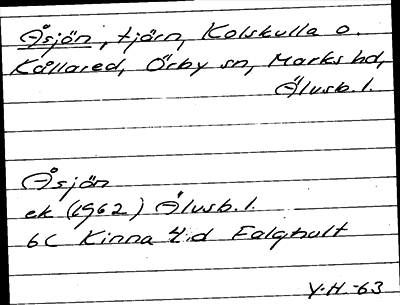 Åsjön, tjärn, Kolskulla o.
Kållared, Örby sn, Marks hd,
Älvsb. l.
Åsjön
ek (1962) Älvsb. l.
6C Kinna 4:d Falghult
Y.H -63